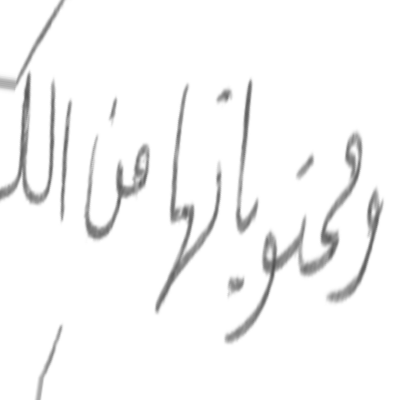 ومحتوياتها من